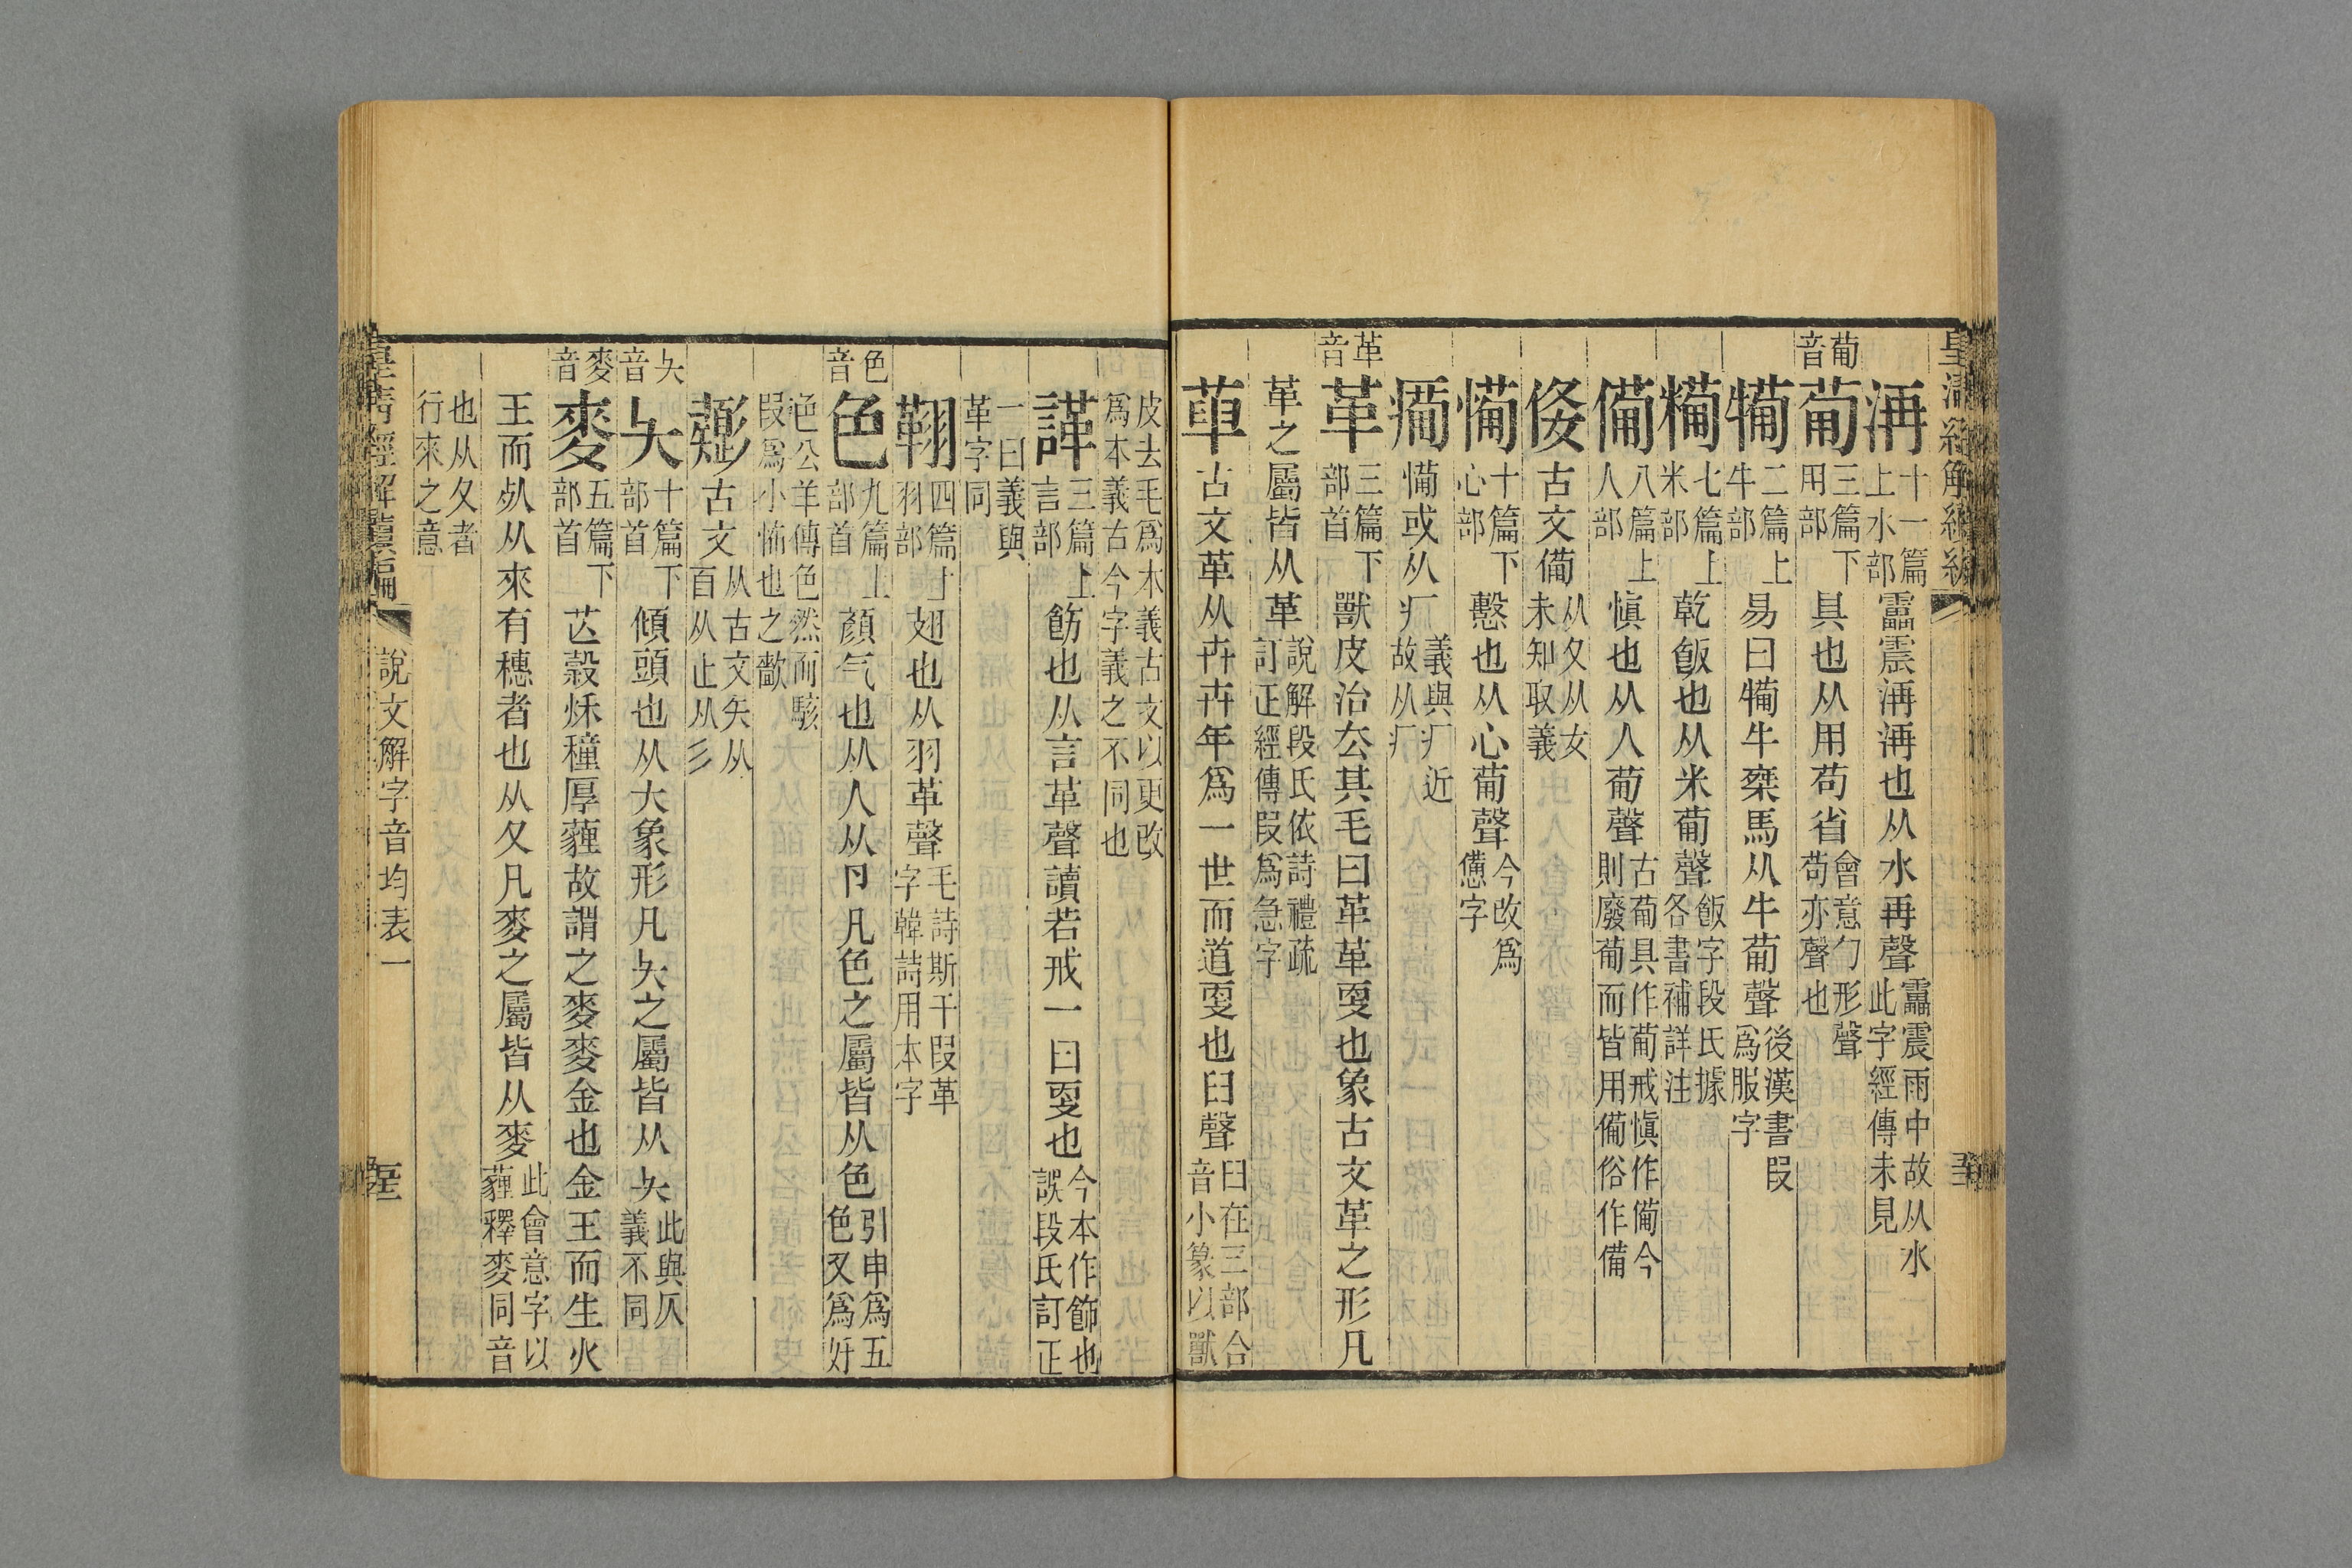 洅十一篇上水部靁震洅洅也从水再聲靁震雨中故从水此字經傳未見
葡音
葡三篇下用部具也从用苟省會意勹形聲苟亦聲也
犕二篇上牛部易曰犕牛椉馬从牛葡聲後漢書叚爲服字
糒七篇上米部乾飯也从米葡聲飯字段氏據各書補詳注
備八篇上人部愼也从人葡聲古葡具作葡戒愼作備今則廢葡而皆用備俗作備
古文備从夊从女未知取義
十篇下心部憊也从心葡聲今改爲憊字
或从疒義與疒近故从疒
革音
革三篇下部首獸皮治厺其毛曰革革更也象古文革之形凡
革之屬皆从革說解段氏依詩禮疏訂正經傳叚爲急字
古文革从卉卉年爲一世而道更也臼聲臼在三部合音小篆以獸
皮去毛爲本義古文以更改爲本義古今字義之不同也
諽三篇上言部飭也从言革聲讀若戒一曰更也今本作飾也誤段氏訂正
一曰義與革字同
翶四篇上羽部翅也从羽革聲毛詩斯干叚革字韓詩用本字
色音
色九篇上部首顏气也从人从卪凡色之屬皆从色引申爲五色又爲好
色公羊傳色然而駭叚爲小怖也之歡
古文从古文矢从百从止从彡
夨音
夨十篇下部首傾頭也从大象形凡夨之屬皆从夨此與仄義不同
麥音
麥五篇下部首芒穀秌穜厚薶故謂之麥麥金也金王而生火
王而死从來有穗者也从夊凡麥之屬皆从麥此會意字以薶釋麥同音
也从夊者行來之意
皇清經解續編
說文解字音均表一